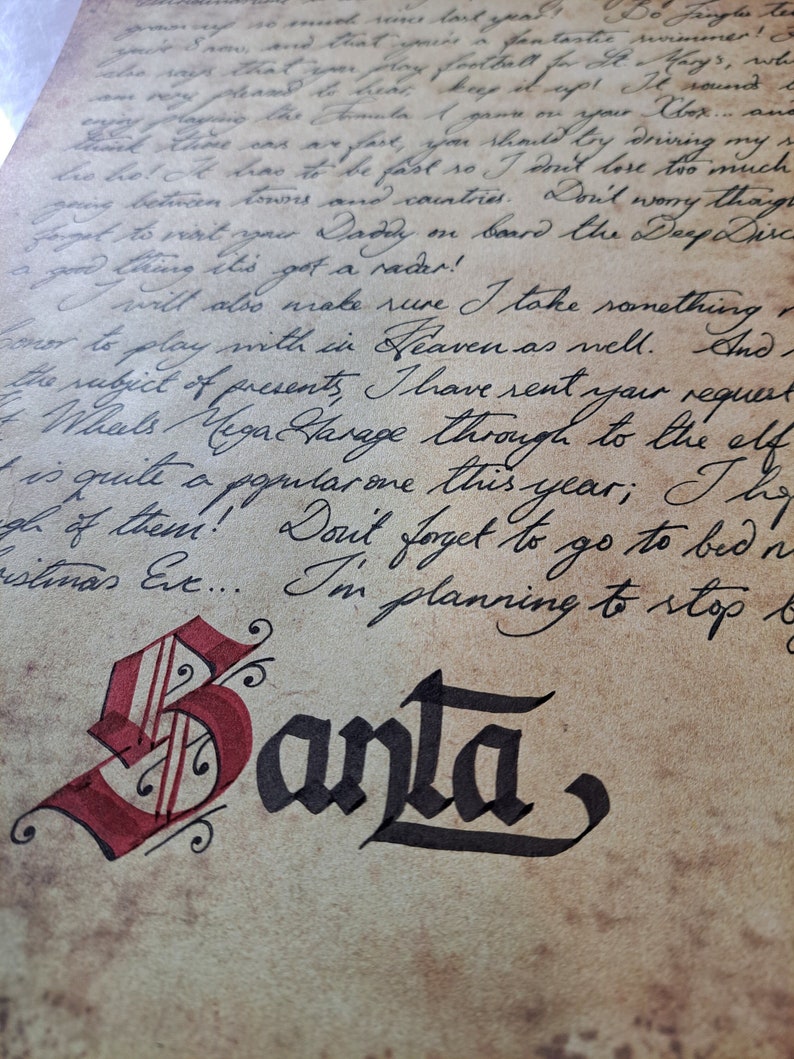 growing so much since last year! Bo Jingles te
you're 8 now, and that you're a fantastic swimmer! I
also says that you play football for St. Mary's, wh
am very pleased to hear. Keep it up! It sounds
enjoy playing the Formula 1 game on your Xbox... and
think those cars are fast, you should try driving my s
ho ho! It has to be fast so I don't lose too much
going between towns and countries. Don't worry though
forget to visit your Daddy on board the Deep Disc
a good thing it's got a radar!
I will also make sure I take something
onor to play with in Heaven as well. And
the subject of presents, I have sent your request
t Wheels Mega Garage through to the elf
t is quite a popular one this year; I hop
gh of them! Don't forget to go to bed n
hristmas Eve... I'm planning to stop by
Santa